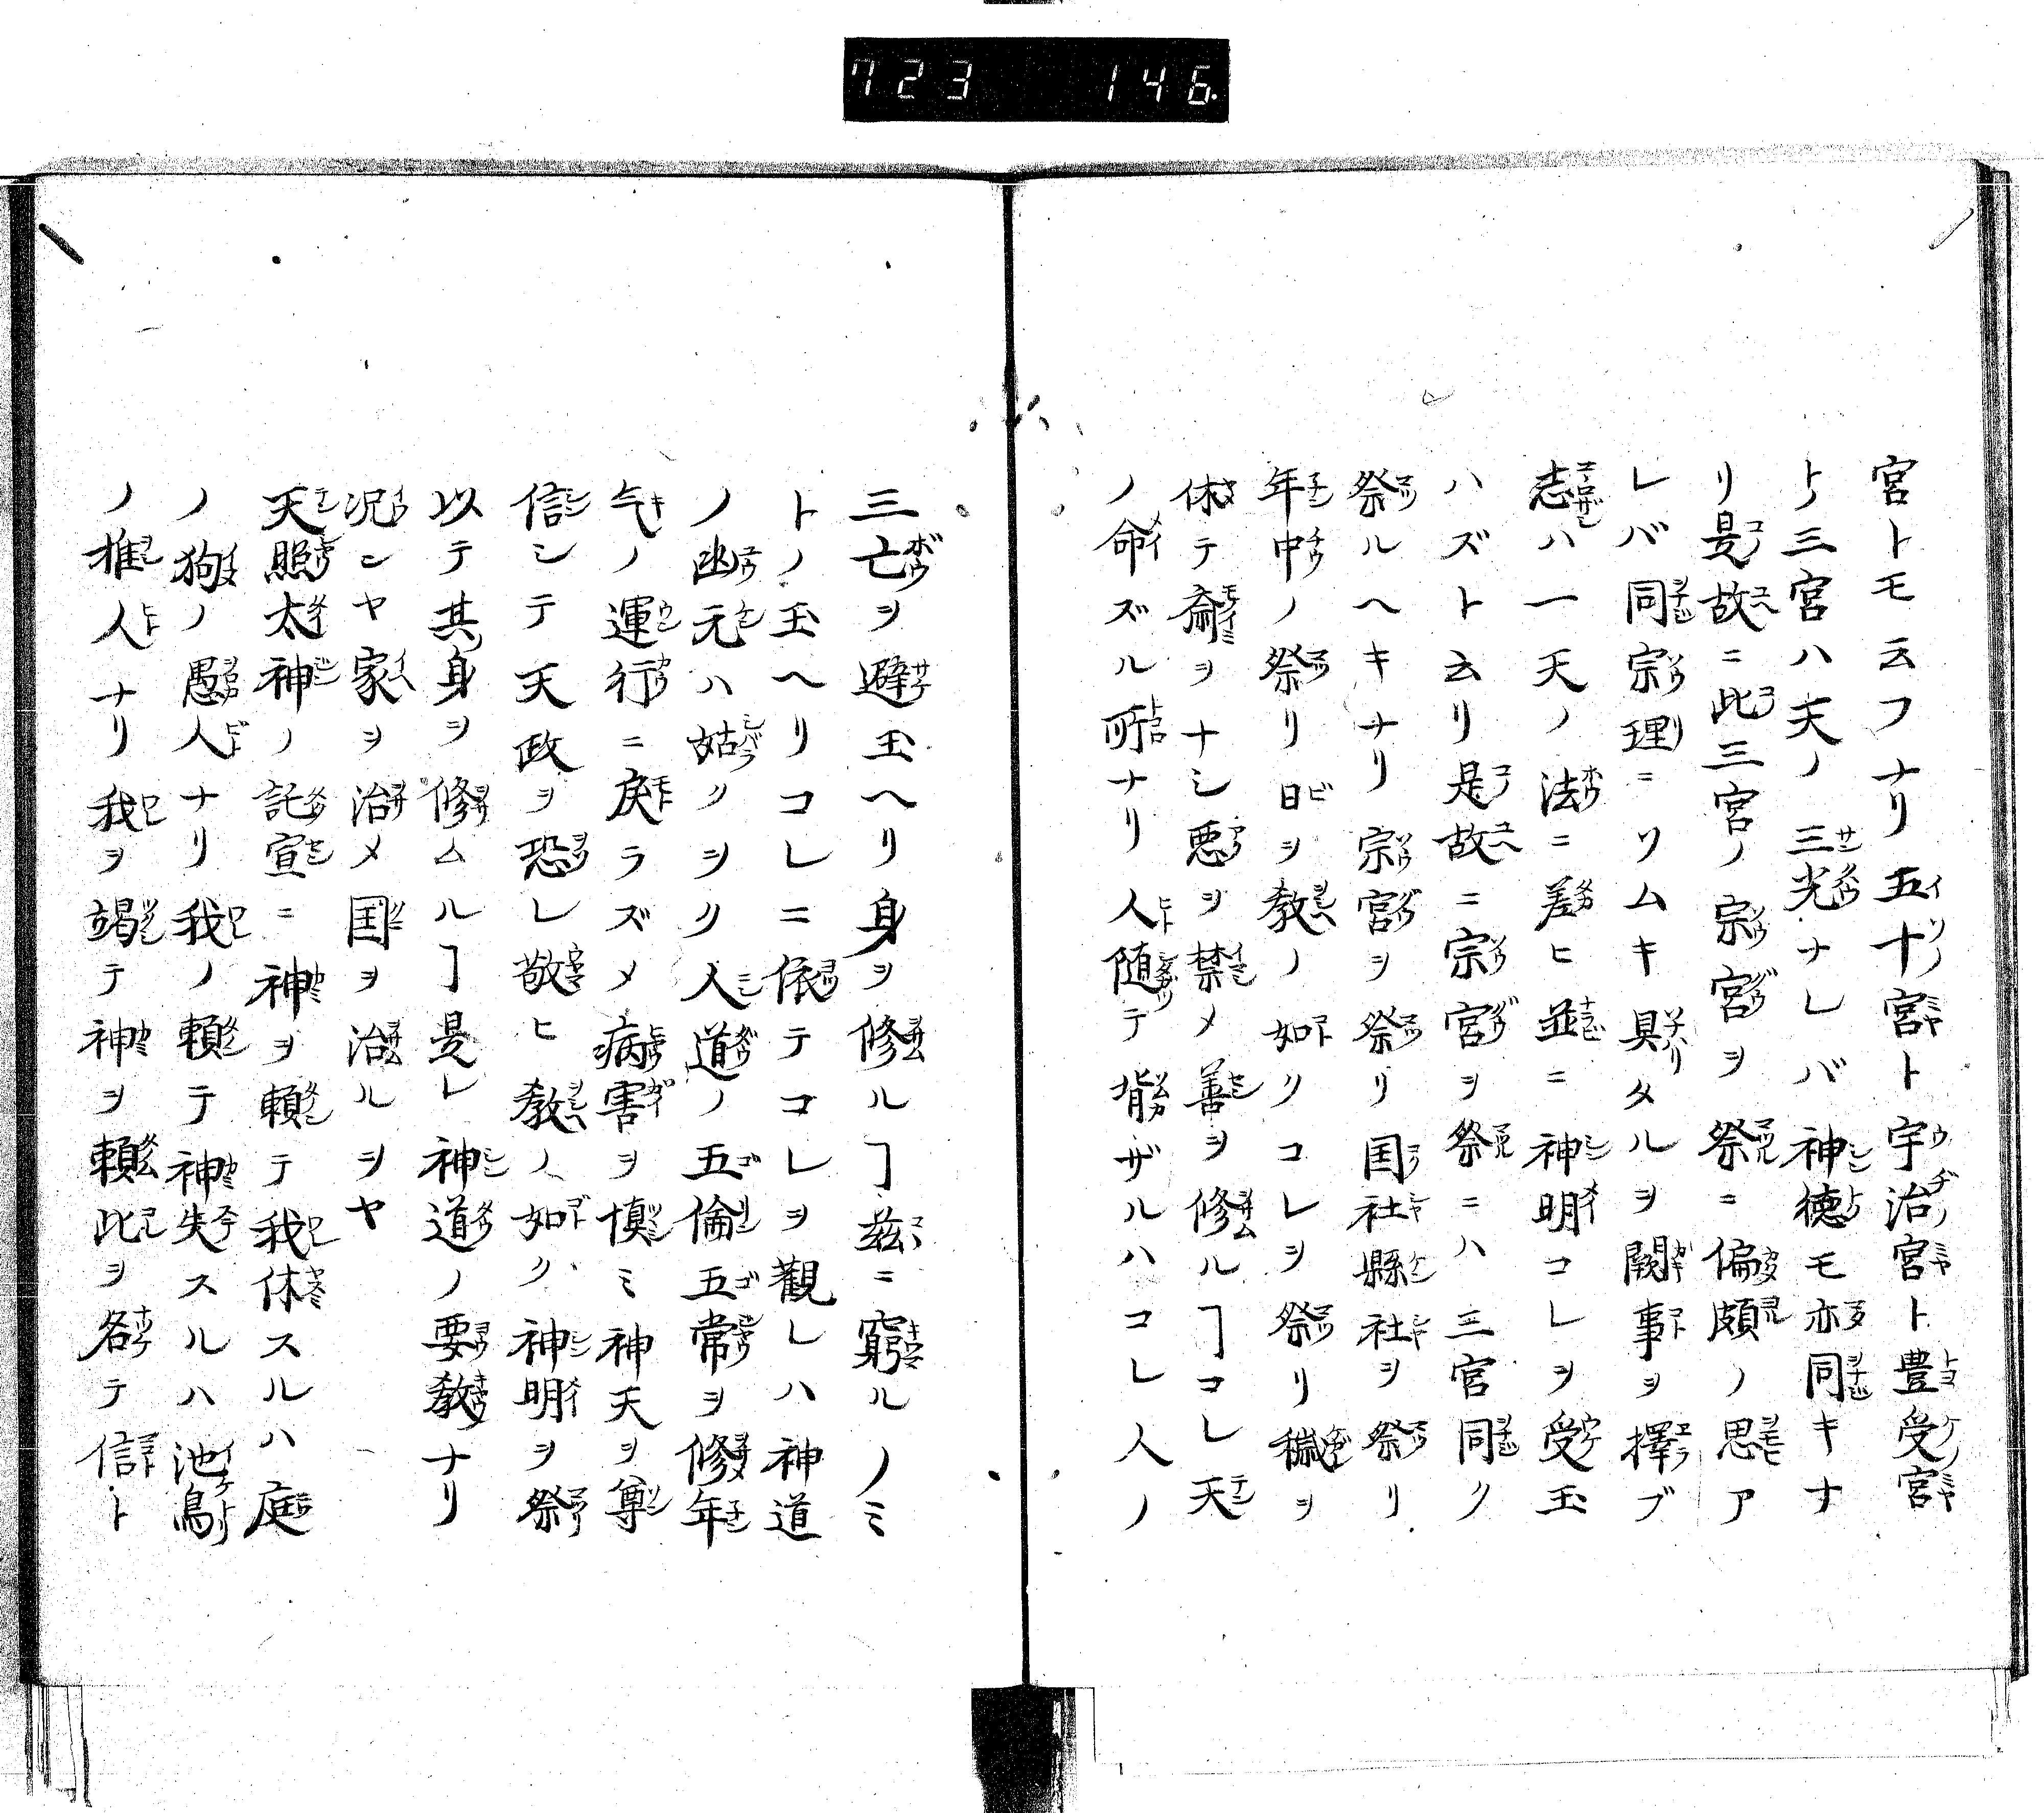 723 146
宮トモ云フナリ五十宮ト宇治宮ト豊受宮
トノ三宮ハ天ノ三光ナレバ神徳モ亦同キナ
リ是故ニ此三宮ノ宗宮ヲ祭ニ偏頗ノ思ア
レバ同宗理ニソムキ具タルヲ闕事ヲ擇ブ
志ハ一天ノ法ニ差ヒ並ニ神明コレヲ受玉
ハズト云リ是故ニ宗宮ヲ祭ニハ三宮同ク
祭ルヘキナリ宗宮ヲ祭リ国社縣社ヲ祭リ
年中ノ祭リ日ヲ教ノ如クコレヲ祭リ穢ヲ
休テ齋ヲナシ悪ヲ禁メ善ヲ修ルヿコレ天
ノ命ズル所ナリ人随テ背ザルハコレ人ノ
三亡ヲ避玉ヘリ身ヲ修ルヿ茲ニ窮ルノミ
トノ玉ヘリコレニ依テコレヲ觀レハ神道
ノ幽元ハ姑クヲク人道ノ五倫五常ヲ修年
气ノ運行ニ戻ラズメ病害ヲ慎ミ神天ヲ尊
信シテ天政ヲ恐レ敬ヒ教ノ如ク神明ヲ祭
以テ其身ヲ修ムルヿ是レ神道ノ要教ナリ
况ンヤ家ヲ治メ国ヲ治ルヲヤ
天照太神ノ託宣ニ神ヲ頼テ我休スルハ庭
ノ狗ノ愚人ナリ我ノ頼テ神失スルハ池鳥
ノ推人ナリ我ヲ竭テ神ヲ頼此ヲ名テ信ト